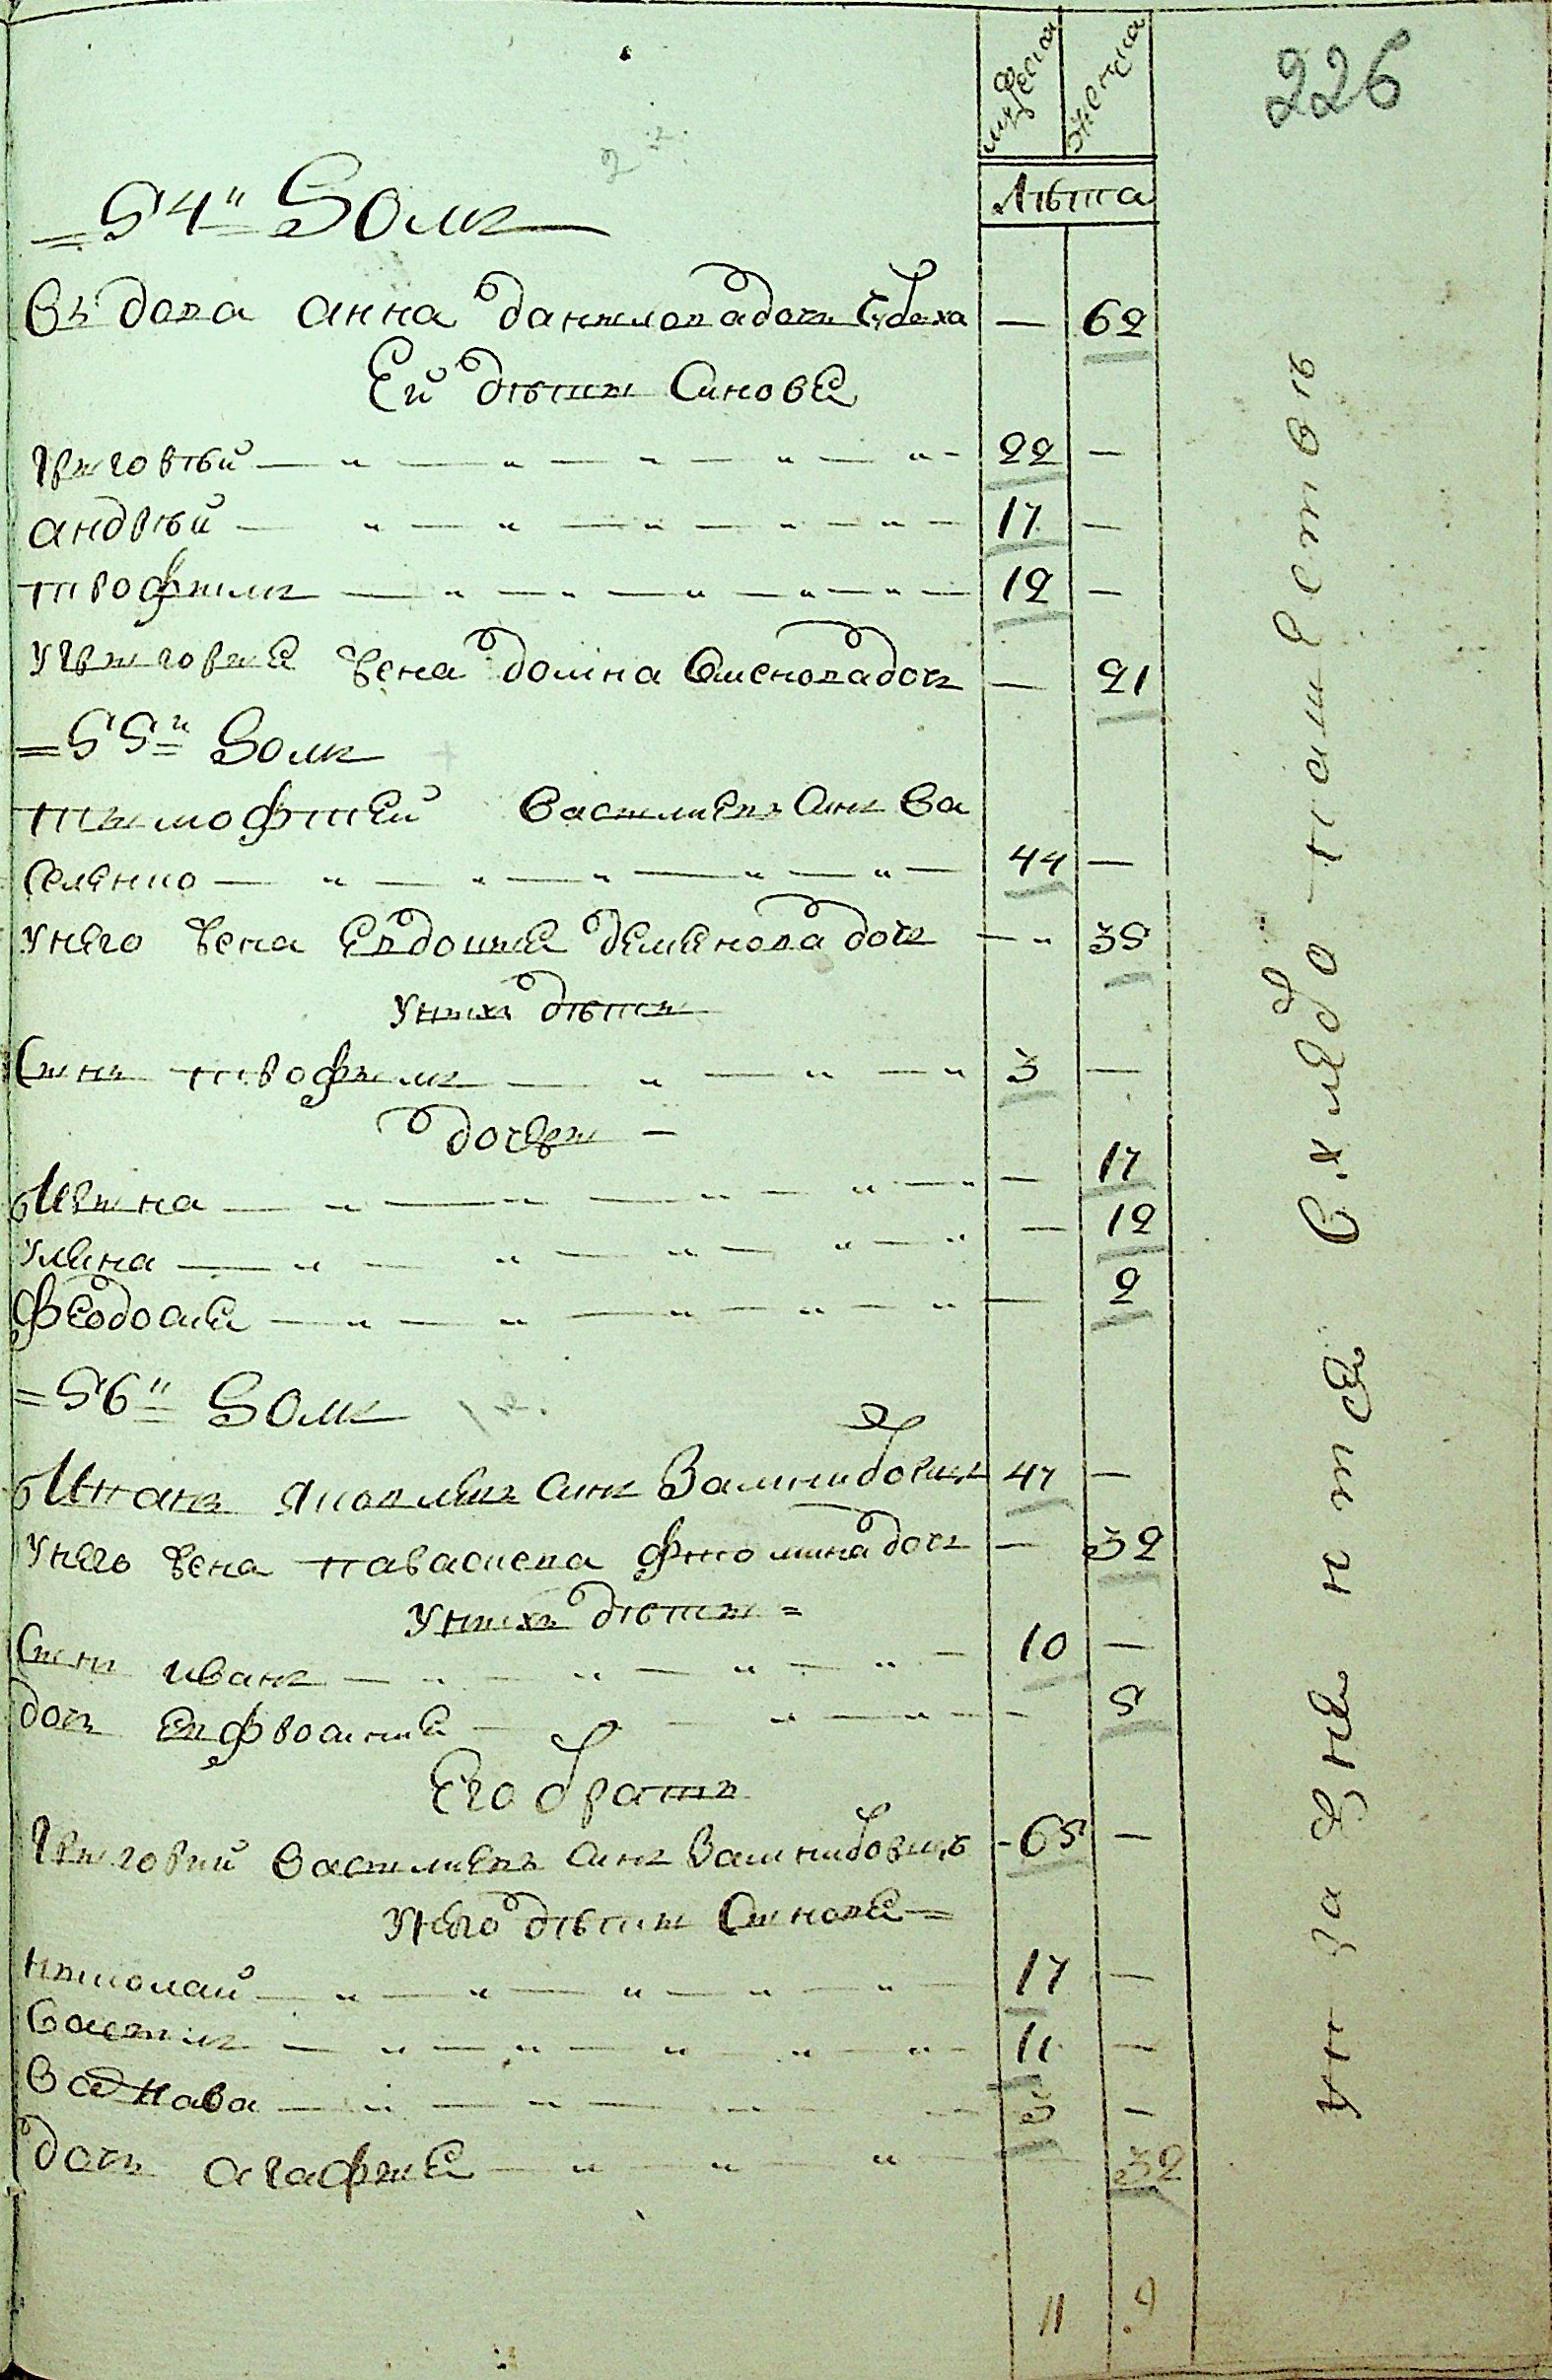 226
мужеска женска
Лѣта
54й Домъ
Въдова анна данилова дочь — 62
Ей дѣти Синове
Григорѣй — 22 —
андрѣй — 17 —
трофимъ — 12 —
у Григория жена домна Сменова дочь — 21
55й Домъ
тимофтей Василиевъ Синъ Ва
селенко — 44 —
у него жена Евдокие деменова дочь — 35
у нихъ дѣти
Синъ трофимъ — 3 —
дочери —
Ирина — 17
Улина — 12
Феодосие — 2
56й Домъ
Иванъ Яковлевъ Синъ — 47 —
у него жена параскева Фомина дочь — 32
у нихъ дѣти
Синъ иванъ — 10 —
дочь Евфросиние — 5
Его братъ
Григорий Василиевъ Синъ — 65 —
у него дѣти Синове
николай — 17 —
Василь — 11 —
—
дочь агафие — 32
11 9